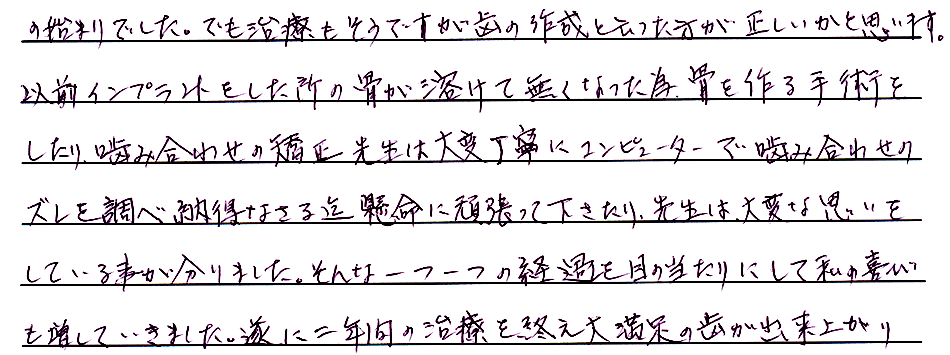 の始まりでした。でも治療もそうですが歯の作成と云った方が正しいかと思います。
以前インプラントをした所の骨が溶けて無くなった為、骨を作る手術を
したり、噛み合わせの矯正 先生は大変丁寧にコンピューターで噛み合わせの
ズレを調べ納得なさる迄懸命に頑張って下さたり、先生は、大変な思いを
している事が分りました。そんな一つ一つの経過を目の当たりにして私の喜びは
も増していきました。遂に二年間の治療を終え大満足の歯が出来上がり